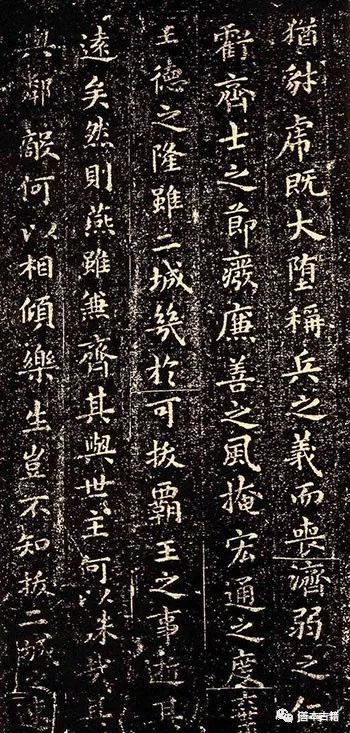 猶豺虎既大墮稱兵之義而喪濟弱之仁
虧齊士之節廢廉善之風掩宏通之度棄
王德之隆雖二城幾於可拔霸王之事逝其
遠矣然則燕雖兼齊其與世主何以殊哉其
與鄰敵何以相傾樂生豈不知拔二城之
本古籍